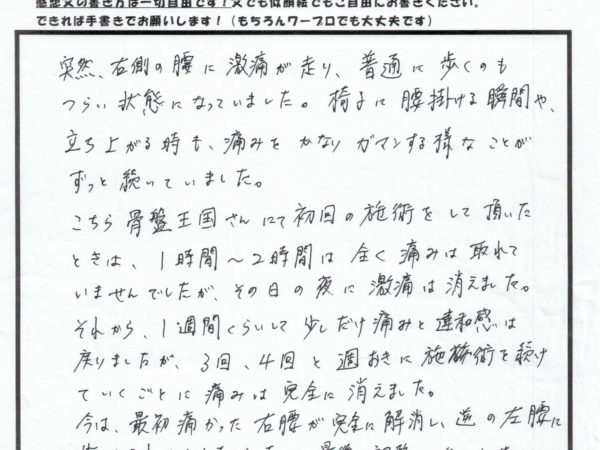 感想文の書き方は一切自由です！文でも似顔絵でもご自由にお書きください。
できれば手書きでお願いします！（もちろんワープロでも大丈夫です）
突然、右側の腰に激痛が走り、普通に歩くのも
つらい状態になっていました。椅子に腰掛ける瞬間や、
立ち上がる時も、痛みをかなりガマンする様なことが
ずっと続いていました。
こちら骨盤王国さんにて初回の施術をして頂いた
ときは、1時間〜2時間は全く痛みは取れて
いませんでしたが、その日の夜に激痛は消えました。
それから、1週間くらいして少しだけ痛みと違和感は
戻りましたが、3回、4回と週おきに施術を続け
ていくごとに痛みは完全に消えました。
今は、最初痛かった右腰が完全に解消し、逆の左腰に